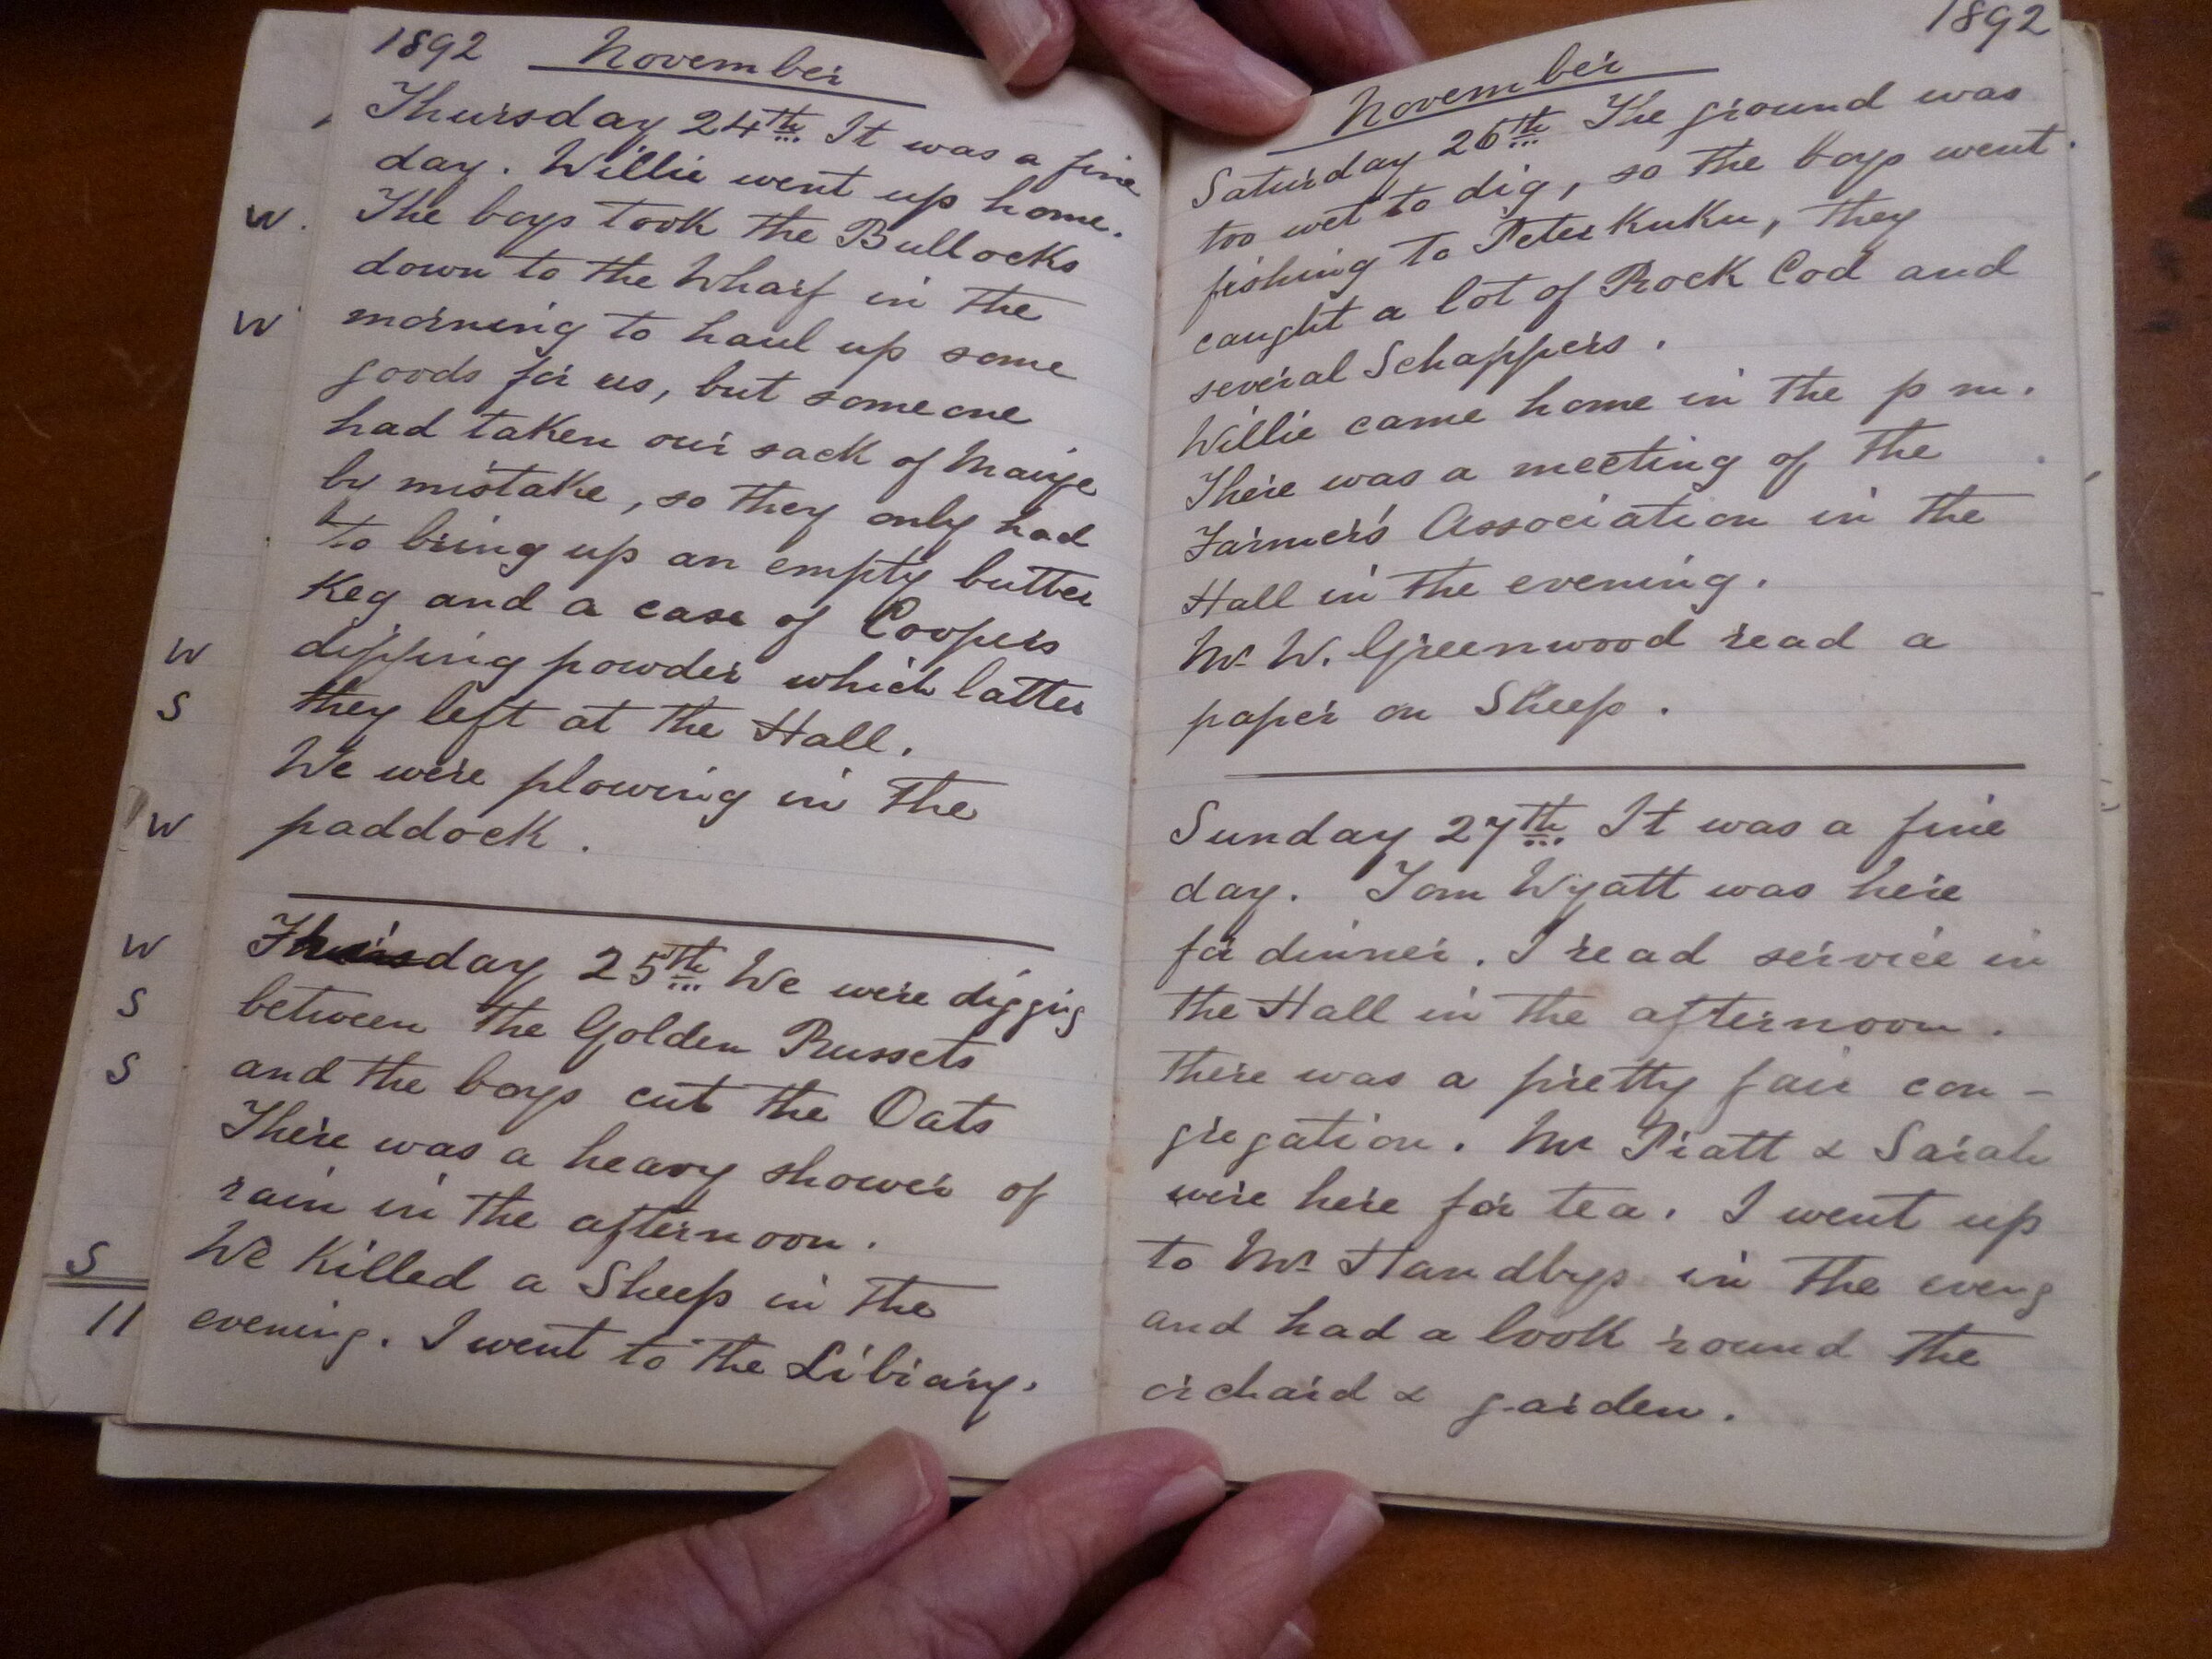 1892 November
Thursday 24th It was a fine
day. Willie went up home.
The boys took the Bullocks
down to the Wharf in the
morning to haul up some
goods for us, but someone
had taken our sack of Maize
by mistake, so they only had
to bring up an empty butter
Keg and a case of Coopers
dipping powder which latter
they left at the Hall.
We were plowing in the
paddock.
day 25th We were digging
between the Golden Russets
and the boys cut the Oats
There was a heavy shower of
rain in the afternoon.
We Killed a Sheep in the
evening. I went to the Library.
W.
W
W
S
W
W
S
S
S
11
1892
November
Saturday 26th The ground was
too wet to dig, so the boys went
fishing to Peter Kuku, they
caught a lot of Rock Cod and
several Schappers.
Willie came home in the p m.
There was a meeting of the
Farmer's Association in the
Hall in the evening.
Mr W. Greenwood read a
paper on Sheep.
Sunday 27th It was a fine
day. Tom Wyatt was here
for dinner. I read service in
the Hall in the afternoon.
There was a pretty fair con-
gregation. Mr Pratt & Sarah
were here for tea. I went up
to Mr Handbys in the eveng
and had a look round the
orchard & garden.